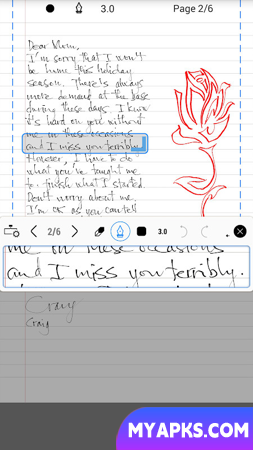 3.0 Page 2/6
Dear Mom,
I'm sorry that I won't
be home this holiday
season. There's always
more demand at the base
during these days. I know
it's hard on you without
me in these occasions
and I miss you terribly.
However, I have to do
what you've taught me
to: finish what I started.
Don't worry about me
I'm ok as you can tell
2/6 3.0
me in these occasions
and I miss you terribly.
Craig
Craig
MYAPKS.COM